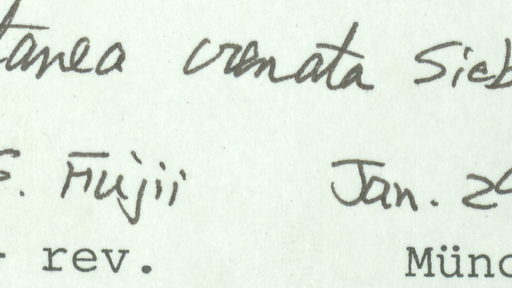 tanea crenata Sieb
S. Fujii Jan. 20
- rev. Münc